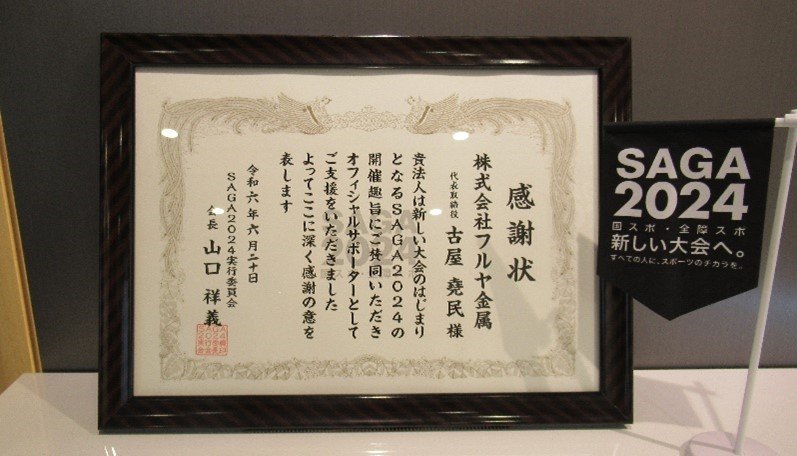 感謝状
株式会社フルヤ金属
代表取締役 古屋 堯民 様
貴法人は新しい大会のはじまり
となるSAGA2024の
開催趣旨にご賛同いただき
オフィシャルサポーターとして
ご支援をいただきました
よってここに深く感謝の意を
表します
令和六年六月二十日
SAGA2024実行委員会
会長 山口 祥義
SAGA
2024
国スポ・全障スポ
新しい大会へ。
すべての人に、スポーツのチカラを。